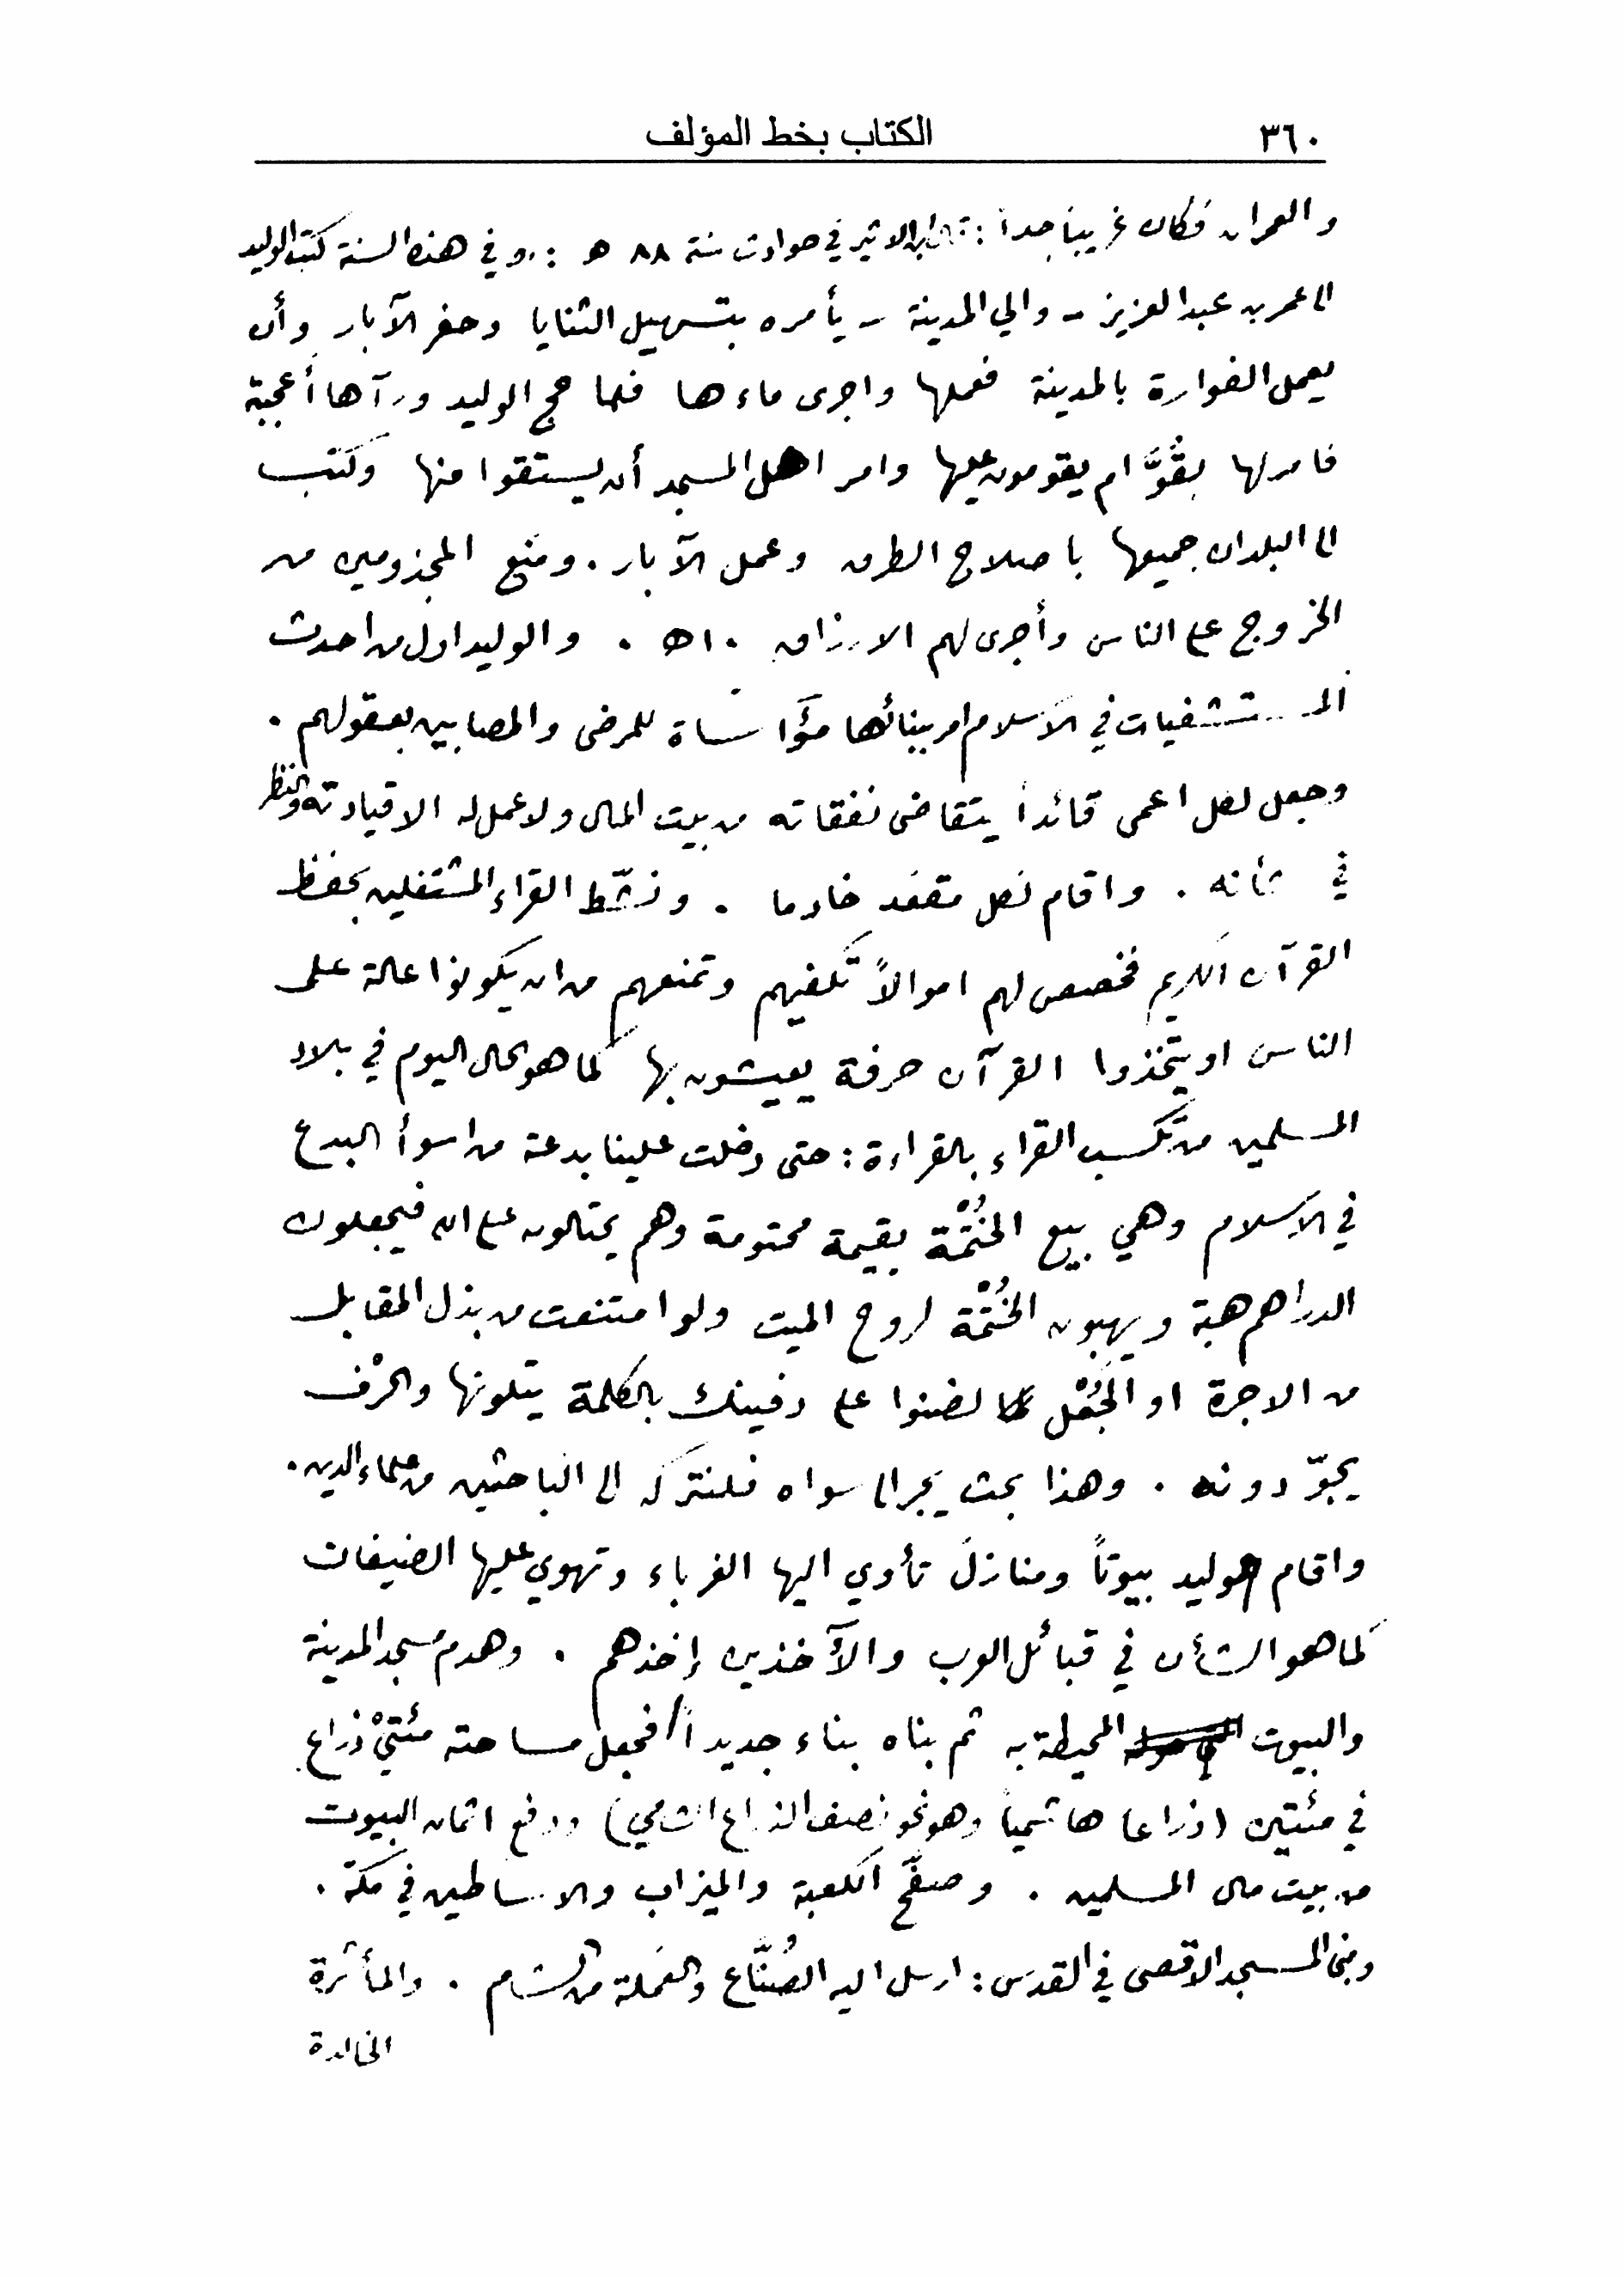 ٣٦٠
الكتاب بخط المؤلف
والعمران فكان غريباً جداً : قال ابن الاثير في حوادث سنة ٨٨ ه : ,, وفي هذه السنة كتب الوليد
الى عمر بن عبدالعزيز - والي المدينة - يأمره بتسهيل الثنايا وحفر الآبار وأن
يعمل الفوارة بالمدينة فعملها واجرى ماءها فلما حج الوليد ورآها أعجبته
فامر لها بقُوَّام يقومون عليها وامر اهل المسجد أن يستقوا منها وكتب
الى البلدان جميعها باصلاح الطرق وعمل الآبار . ومنع المجذومين من
الخروج على الناس وأجرى لهم الارزاق ٠ اه . والوليد اول من احدث
المستشفيات في الاسلام امر ببنائها مؤاساة للمرضى والمصابين بعقولهم .
وجعل لكل اعمى قائداً يتقاضى نفقاته من بيت المال ولا عمل له الا قيادته والنظر
في شأنه . واقام لكل مقعد خادما . ونشّط القراء المشتغلين بحفظ
القرآن الكريم فخصص لهم اموالاً تكفيهم وتمنعهم من ان يكونوا عالة على
الناس او يتخذوا القرآن حرفة يعيشون بها كما هو الحال اليوم في بلاد
المسلمين من تكسب القراء بالقراءة : حتى دخلت علينا بدعة من اسوأ البدع
في الاسلام وهي بيع الخَتْمَة بقيمة محتومة وهم يحتالون على الله فيجعلون
الدراهم هبة ويهبون الخَتْمَة لروح الميت ولو امتنعت من بذل المقابل
من الاجرة او الجُعْل لضنوا على دفينك بالكلمة يتلونها والحرْف
يجوّدونه . وهذا بحث يجر الى سواه فلنتركه الى الباحثين من علماء الدين .
واقام الوليد بيوتاً ومنازلَ تأوي اليها الغرباء وتهوي عليها الضيفان
كما هو الشأن في قبائل العرب والآخذين إخذهم . وهدم مسجد المدينة
والبيوت المحيطة به ثم بناه بناء جديداً / فجعل مساحته مئتيْ ذراع
في مئتين (ذراعا هاشمياً وهو نحو نصف الذراع الشامي) ودفع اثمان البيوت
من بيت مال المسلمين . وصفَّح الكعبة والميزاب والاساطين في مكة .
وبنى المسجد الاقصى في القدس : ارسل اليه الصُنَّاع والعَمَلة من الشام . والمأثرة
الخالدة